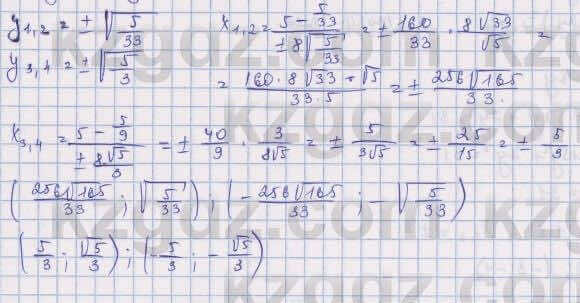 y₁,₂ = ± √(5/33)    x₁,₂ = (5 - 5/33)/(± 8√(5/33)) = ± 160/33 · 8√33/√5 =
y₃,₄ = ± √5/3    = (160·8√33·√5)/(33·5) = ± 256√165/33.
x₃,₄ = (5 - 5/9)/(± 8√5/3) = ± 40/9 · 3/8√5 = ± 5/3√5 = ± 25/15 = ± 5/3
(256√165/33 ; √(5/33)) ; (- 256√165/33 ; - √(5/33))
(5/3 ; √5/3) ; (- 5/3 ; - √5/3)